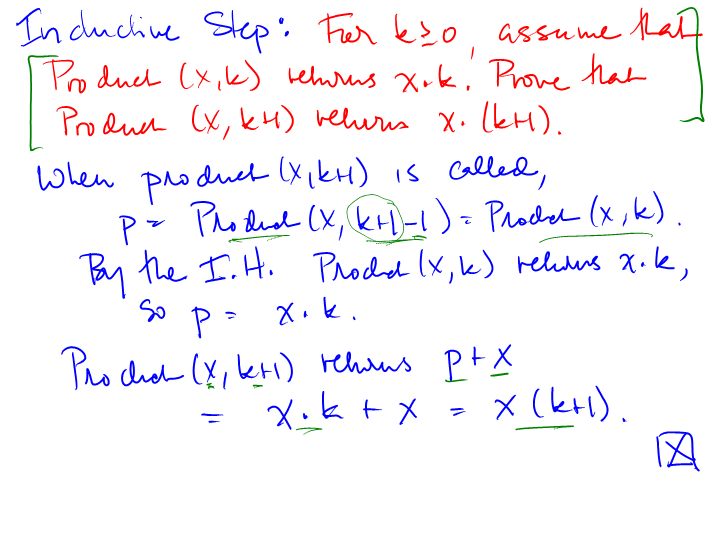 Inductive Step: For k≥0, assume that
Product (x,k) returns x·k. Prove that
Product (x, k+1) returns x·(k+1).
When product (x,k+1) is called,
p = Product (x, k+1-1) = Product (x,k).
By the I.H. Product (x,k) returns x·k,
so p = x·k.
Product (x, k+1) returns p+x
= x·k + x = x (k+1).